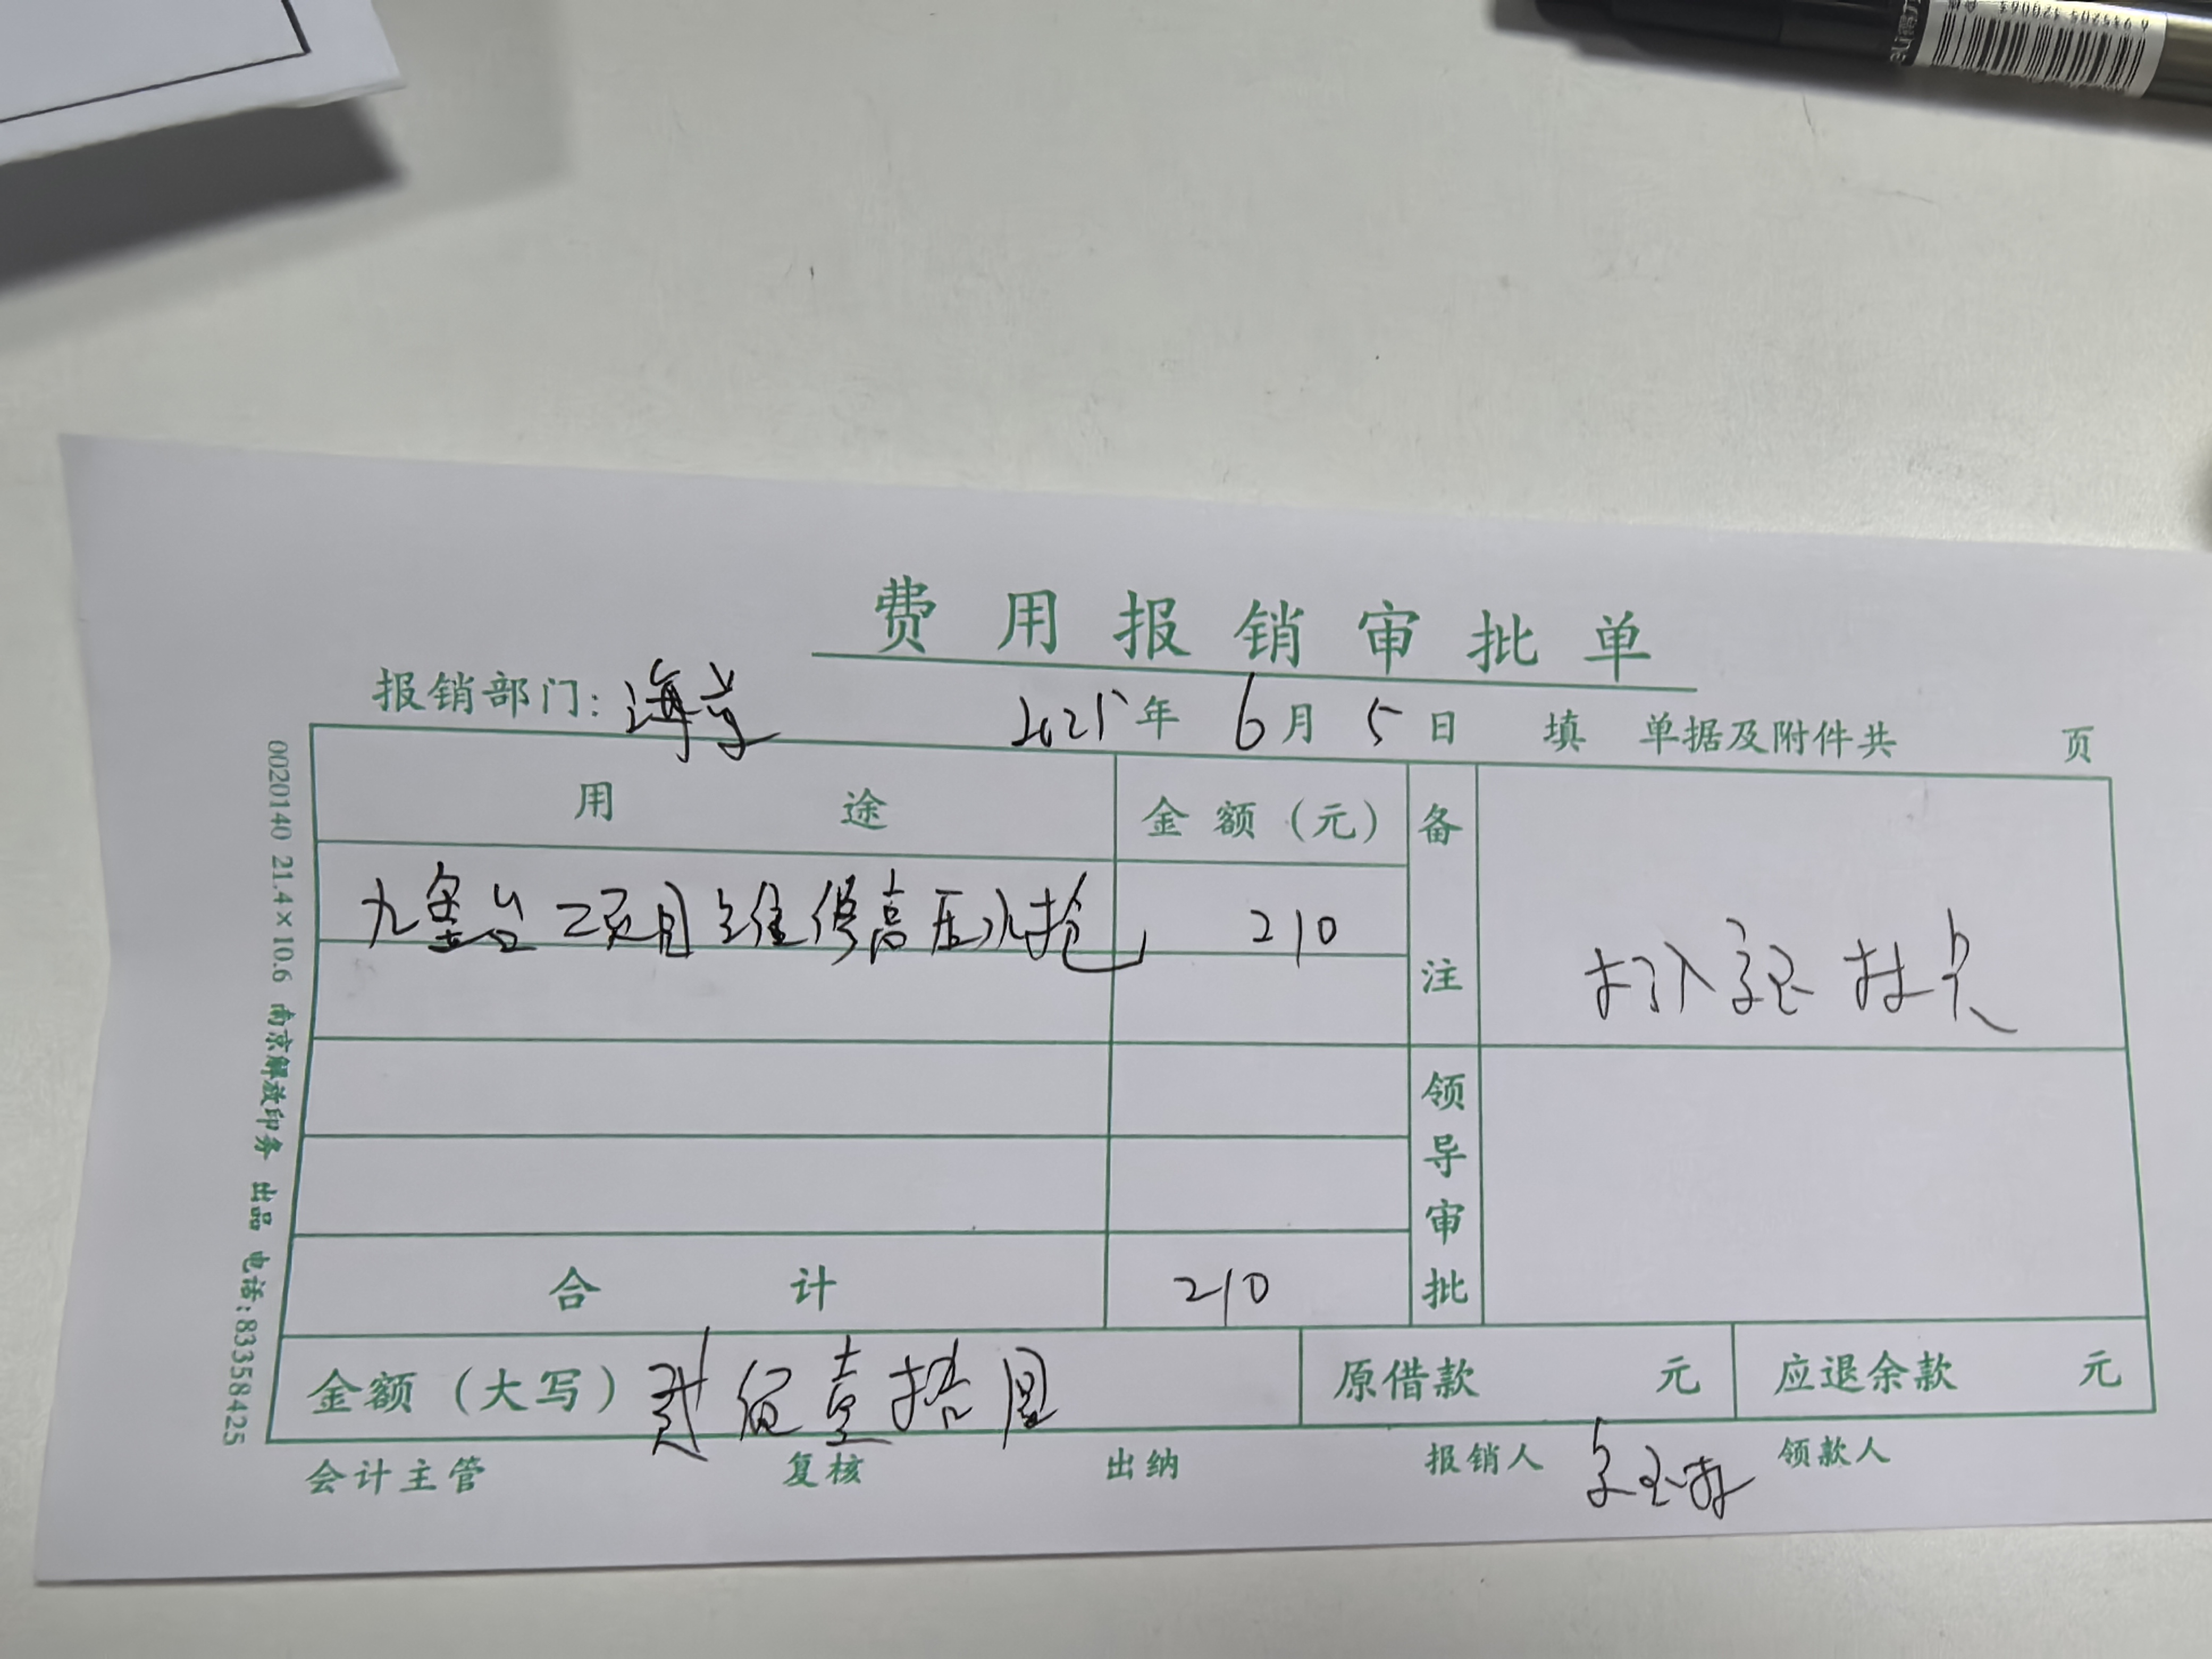 费用报销审批单
报销部门: 海 2025年 6月 5日 填 单据及附件共 页
用途 金额（元） 备注
九 台二项目维修高压水枪 210
打入 卡
领导审批
合计 210
金额（大写） 贰佰壹拾圆 原借款 元 应退余款 元
会计主管 复核 出纳 报销人 领款人
0020140 21.4×10.6 南京解放印务 出品 电话:83358425